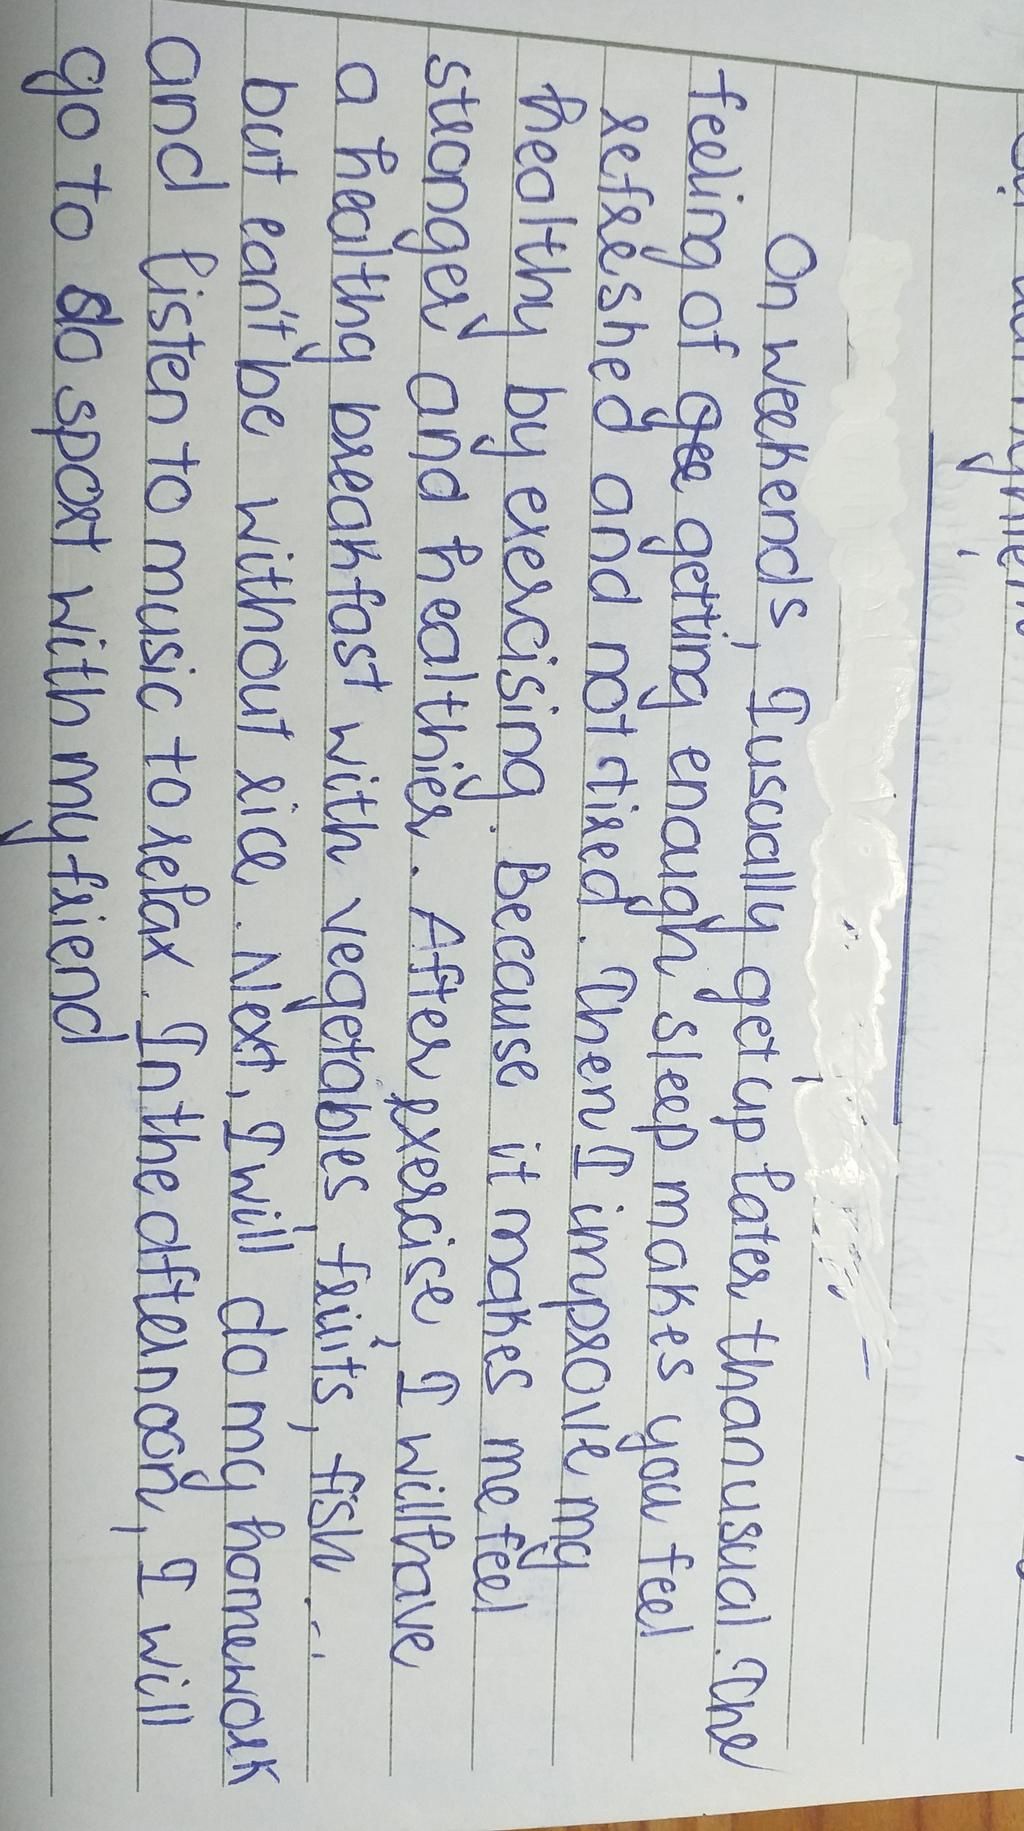 On weekends, I usually get up later than usual. The
feeling of gee getting enough sleep makes you feel
refreshed and not tired. Then I improve my
healthy by exercising. Because it makes me feel
stronger and healthier. After exercise, I will have
a healthy breakfast with vegetables, fruits, fish ...
but can't be without rice. Next, I will do my homework
and listen to music to relax. In the afternoon, I will
go to do sport with my friend